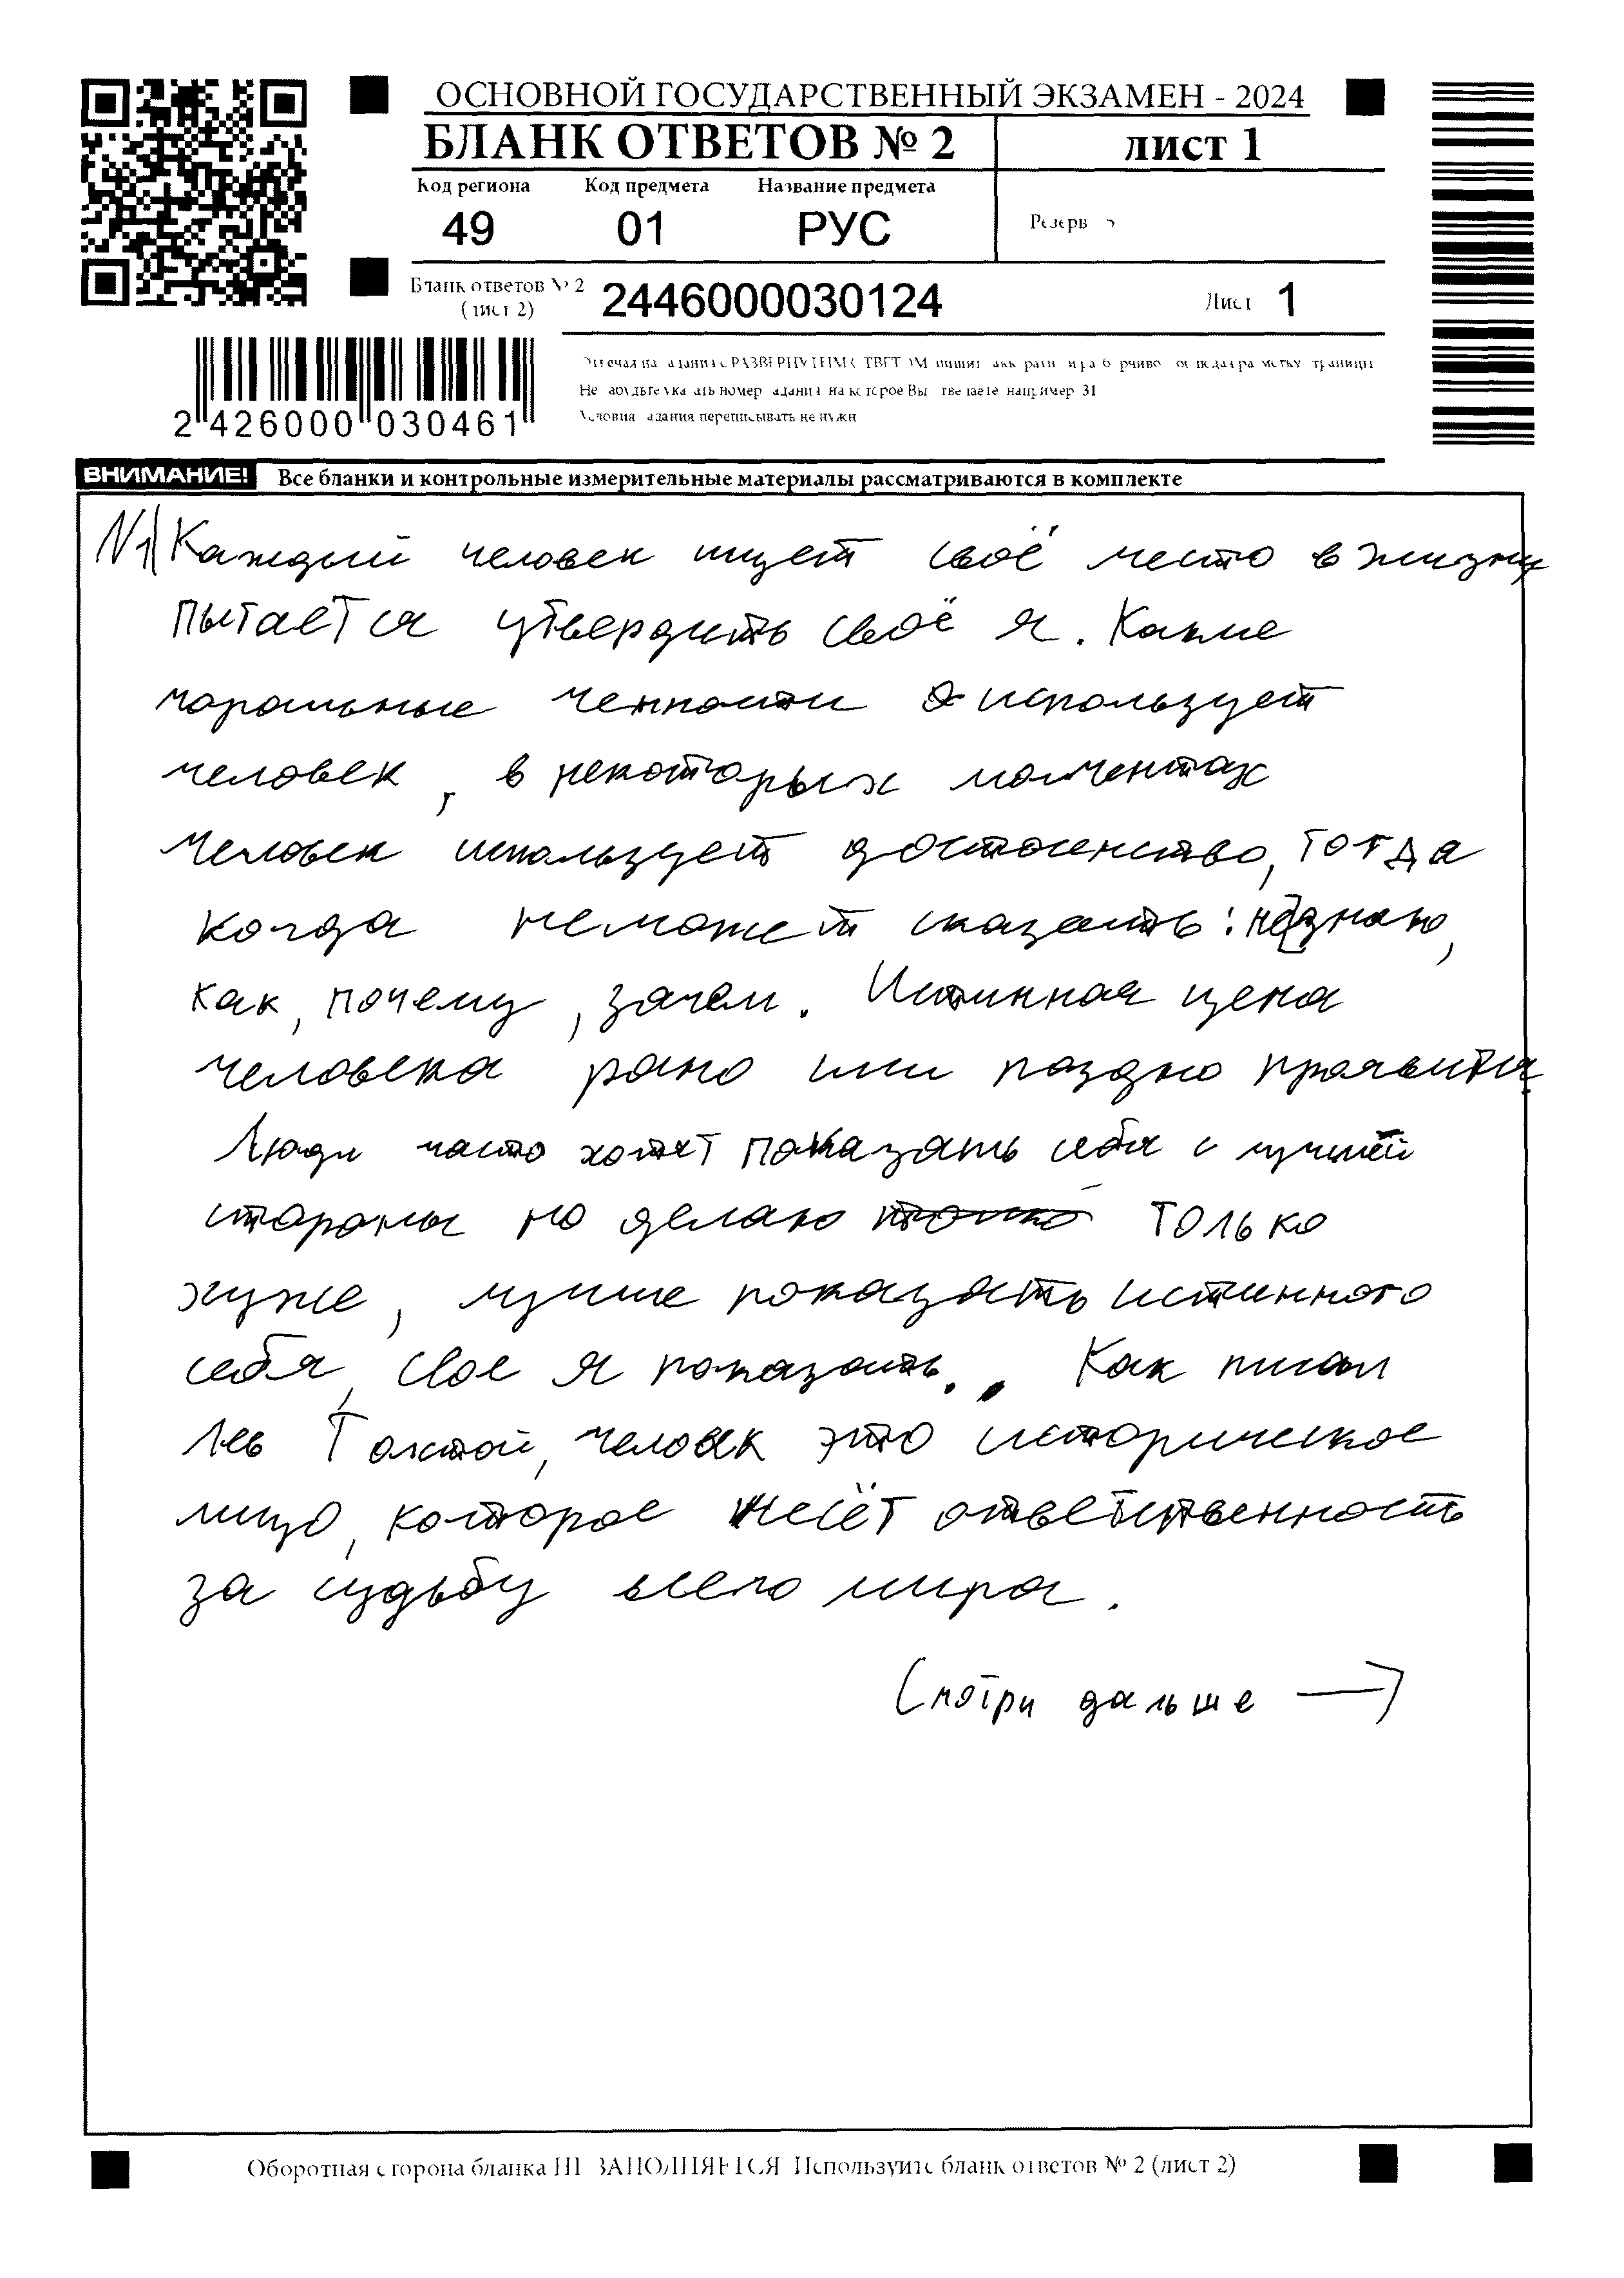 ОСНОВНОЙ ГОСУДАРСТВЕННЫЙ ЭКЗАМЕН - 2024
БЛАНК ОТВЕТОВ № 2
лист 1
Код региона Код предмета Название предмета
49 01 РУС
Резерв
Бланк ответов № 2
(лист 2)
2446000030124
Лист 1
2 426000 030461
ВНИМАНИЕ! Все бланки и контрольные измерительные материалы рассматриваются в комплекте
N1 Каждый человек ищет своё место в жизни
пытается утвердить своё я. Какие
моральные ченности использует
человек, в некоторых моментах
человек использует достоенство, тогда
когда неможет сказать: не знаю,
как, почему, зачем. Истинная цена
человека рано или поздно проявится
Люди часто хотят показать себя с лучшей
стороны но делаю только
хуже, лучше показать истинного
себя, свое я показать. Как писал
Лев Толстой, человек это историческое
лицо, которое несёт ответственность
за судьбу всего мира.
Смотри дальше →
Оборотная сторона бланка НЕ ЗАПОЛНЯЕТСЯ Используйте бланк ответов № 2 (лист 2)